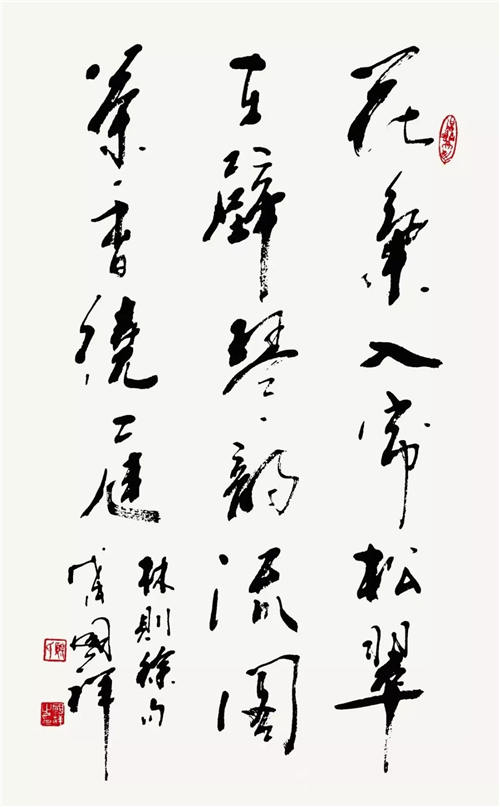 花氣入帘松翠
在壁琴韵流閣
茶香繞庭
林則徐句
國祥